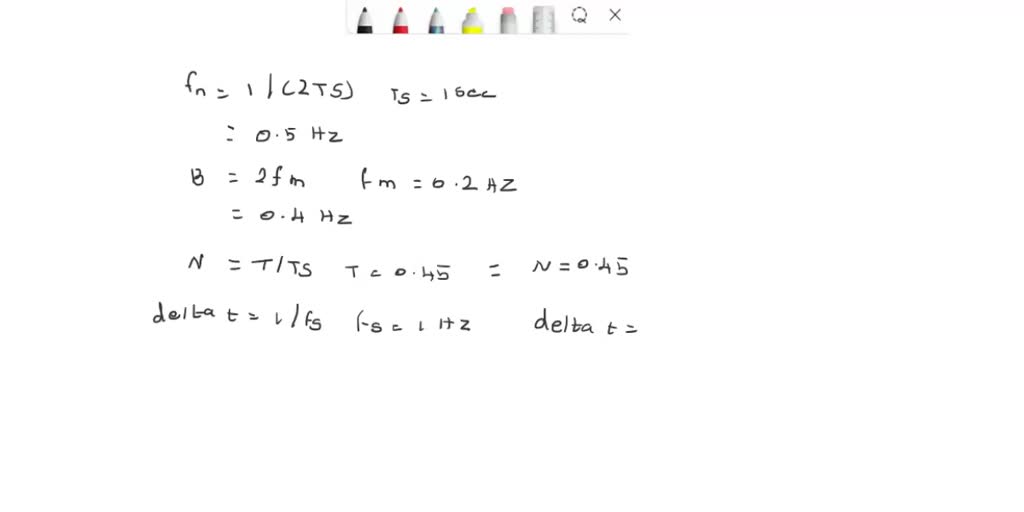 fn = 1/(2TS) TS = 1 sec
= 0.5 Hz
B = 2fm fm = 0.2 HZ
= 0.4 Hz
N = T/TS T = 0.45 = N = 0.45
delta t = 1/fs fs = 1 Hz delta t =